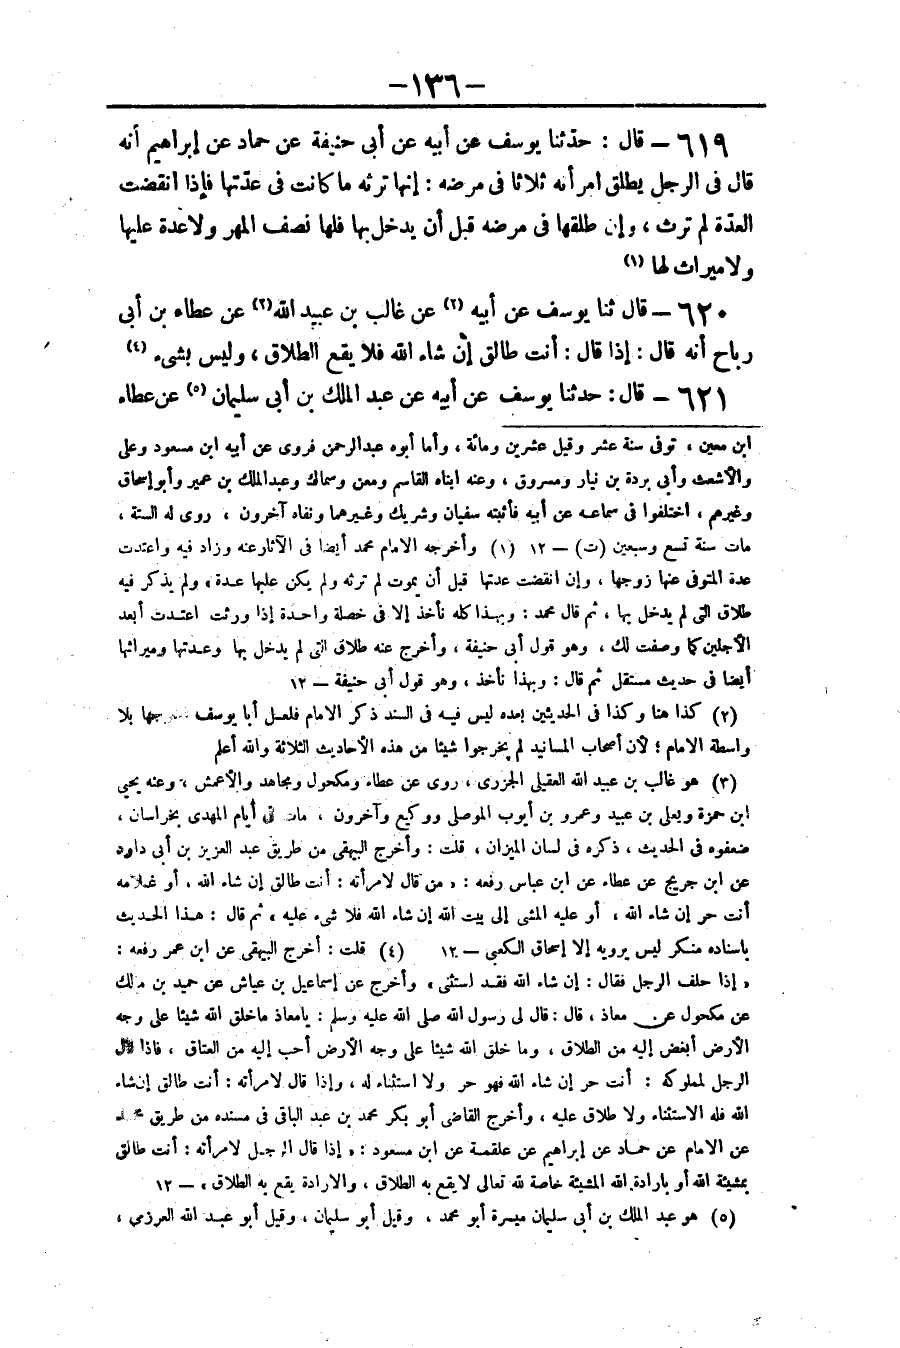 -١٣٦-
٦١٩ - قال : حدثنا يوسف عن أبيه عن أبى حنيفة عن حماد عن إبراهيم أنه
قال فى الرجل يطلق امرأته ثلاثا فى مرضه : إنها ترثه ما كانت فى عدّتها فإذا انقضت
العدّة لم ترث ، وإن طلقها فى مرضه قبل أن يدخل بها فلها نصف المهر ولا عدة عليها
ولا ميراث لها (١)
٦٢٠ - قال ثنا يوسف عن أبيه (٢) عن غالب بن عبيد الله (٣) عن عطاء بن أبى
رباح أنه قال : إذا قال : أنت طالق إن شاء الله فلا يقع الطلاق ، وليس بشىء (٤)
٦٢١ - قال : حدثنا يوسف عن أبيه عن عبد الملك بن أبى سليمان (٥) عن عطاء
ابن معين ، توفى سنة عشر وقيل عشرين ومائة ، وأما أبوه عبدالرحمن فروى عن أبيه ابن مسعود وعلى
والأشعث وأبى بردة بن نيار ومسروق ، وعنه ابناه القاسم ومعن وسماك وعبدالملك بن عمير وأبو إسحاق
وغيرهم ، اختلفوا فى سماعه عن أبيه فأثبته سفيان وشريك وغيرهما ونفاه آخرون ، روى له الستة ،
مات سنة تسع وسبعين (ت) - ١٢ (١) وأخرجه الامام محمد أيضا فى الآثار عنه وزاد فيه واعتدت
عدة المتوفى عنها زوجها ، وإن انقضت عدتها قبل أن يموت لم ترثه ولم يكن عليها عدة ، ولم يذكر فيه
طلاق التى لم يدخل بها ، ثم قال محمد : وبهذا كله نأخذ إلا فى خصلة واحدة إذا ورثت اعتدت أبعد
الأجلين كما وصفت لك ، وهو قول أبى حنيفة ، وأخرج عنه طلاق التى لم يدخل بها وعدتها وميراثها
أيضا فى حديث مستقل ثم قال : وبهذا نأخذ ، وهو قول أبى حنيفة - ١٢
(٢) كذا هنا وكذا فى الحديثين بعده ليس فيه فى السند ذكر الامام فلعل أبا يوسف بلا
واسطة الامام ؛ لأن أصحاب المسانيد لم يخرجوا شيئا من هذه الأحاديث الثلاثة والله أعلم
(٣) هو غالب بن عبيد الله العقيلى الجزرى ، روى عن عطاء ومكحول ومجاهد والأعمش ، وعنه يحيى
ابن حمزة ويعلى بن عبيد وعمرو بن أيوب الموصلى ووكيع وآخرون ، مات فى أيام المهدى بخراسان ،
ضعفوه فى الحديث ، ذكره فى لسان الميزان ، قلت : وأخرج البيهقى من طريق عبد العزيز بن أبى داود
عن ابن جريج عن عطاء عن ابن عباس رفعه : « من قال لامرأته : أنت طالق إن شاء الله ، أو غلامه
أنت حر إن شاء الله ، أو عليه المشى إلى بيت الله إن شاء الله فلا شىء عليه » ثم قال : هذا الحديث
باسناده منكر ليس يرويه إلا إسحاق الكعبى - ١٢ (٤) قلت : أخرج البيهقى عن ابن عمر رفعه :
« إذا حلف الرجل فقال : إن شاء الله فقد استثنى » وأخرج عن إسماعيل بن عياش عن حميد بن مالك
عن مكحول عن معاذ ، قال : قال لى رسول الله صلى الله عليه وسلم : يامعاذ ماخلق الله شيئا على وجه
الأرض أبغض إليه من الطلاق ، وما خلق الله شيئا على وجه الأرض أحب إليه من العتاق ، فاذا قال
الرجل لمملوكه : أنت حر إن شاء الله فهو حر ولا استثناء له ، وإذا قال لامرأته : أنت طالق إن شاء
الله فله الاستثناء ولا طلاق عليه ، وأخرج القاضى أبو بكر محمد بن عبد الباقى فى مسنده من طريق محمد
عن الامام عن حماد عن إبراهيم عن علقمة عن ابن مسعود : « إذا قال الرجل لامرأته : أنت طالق
بمشيئة الله أو بارادة الله المشيئة خاصة لله تعالى لايقع به الطلاق ، والارادة يقع به الطلاق » - ١٢
(٥) هو عبد الملك بن أبى سليمان ميسرة أبو محمد ، وقيل أبو سليمان ، وقيل أبو عبد الله العرزمى ،